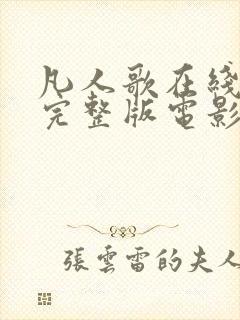 凡人歌在綫
完整版電影
張雲雷的夫人